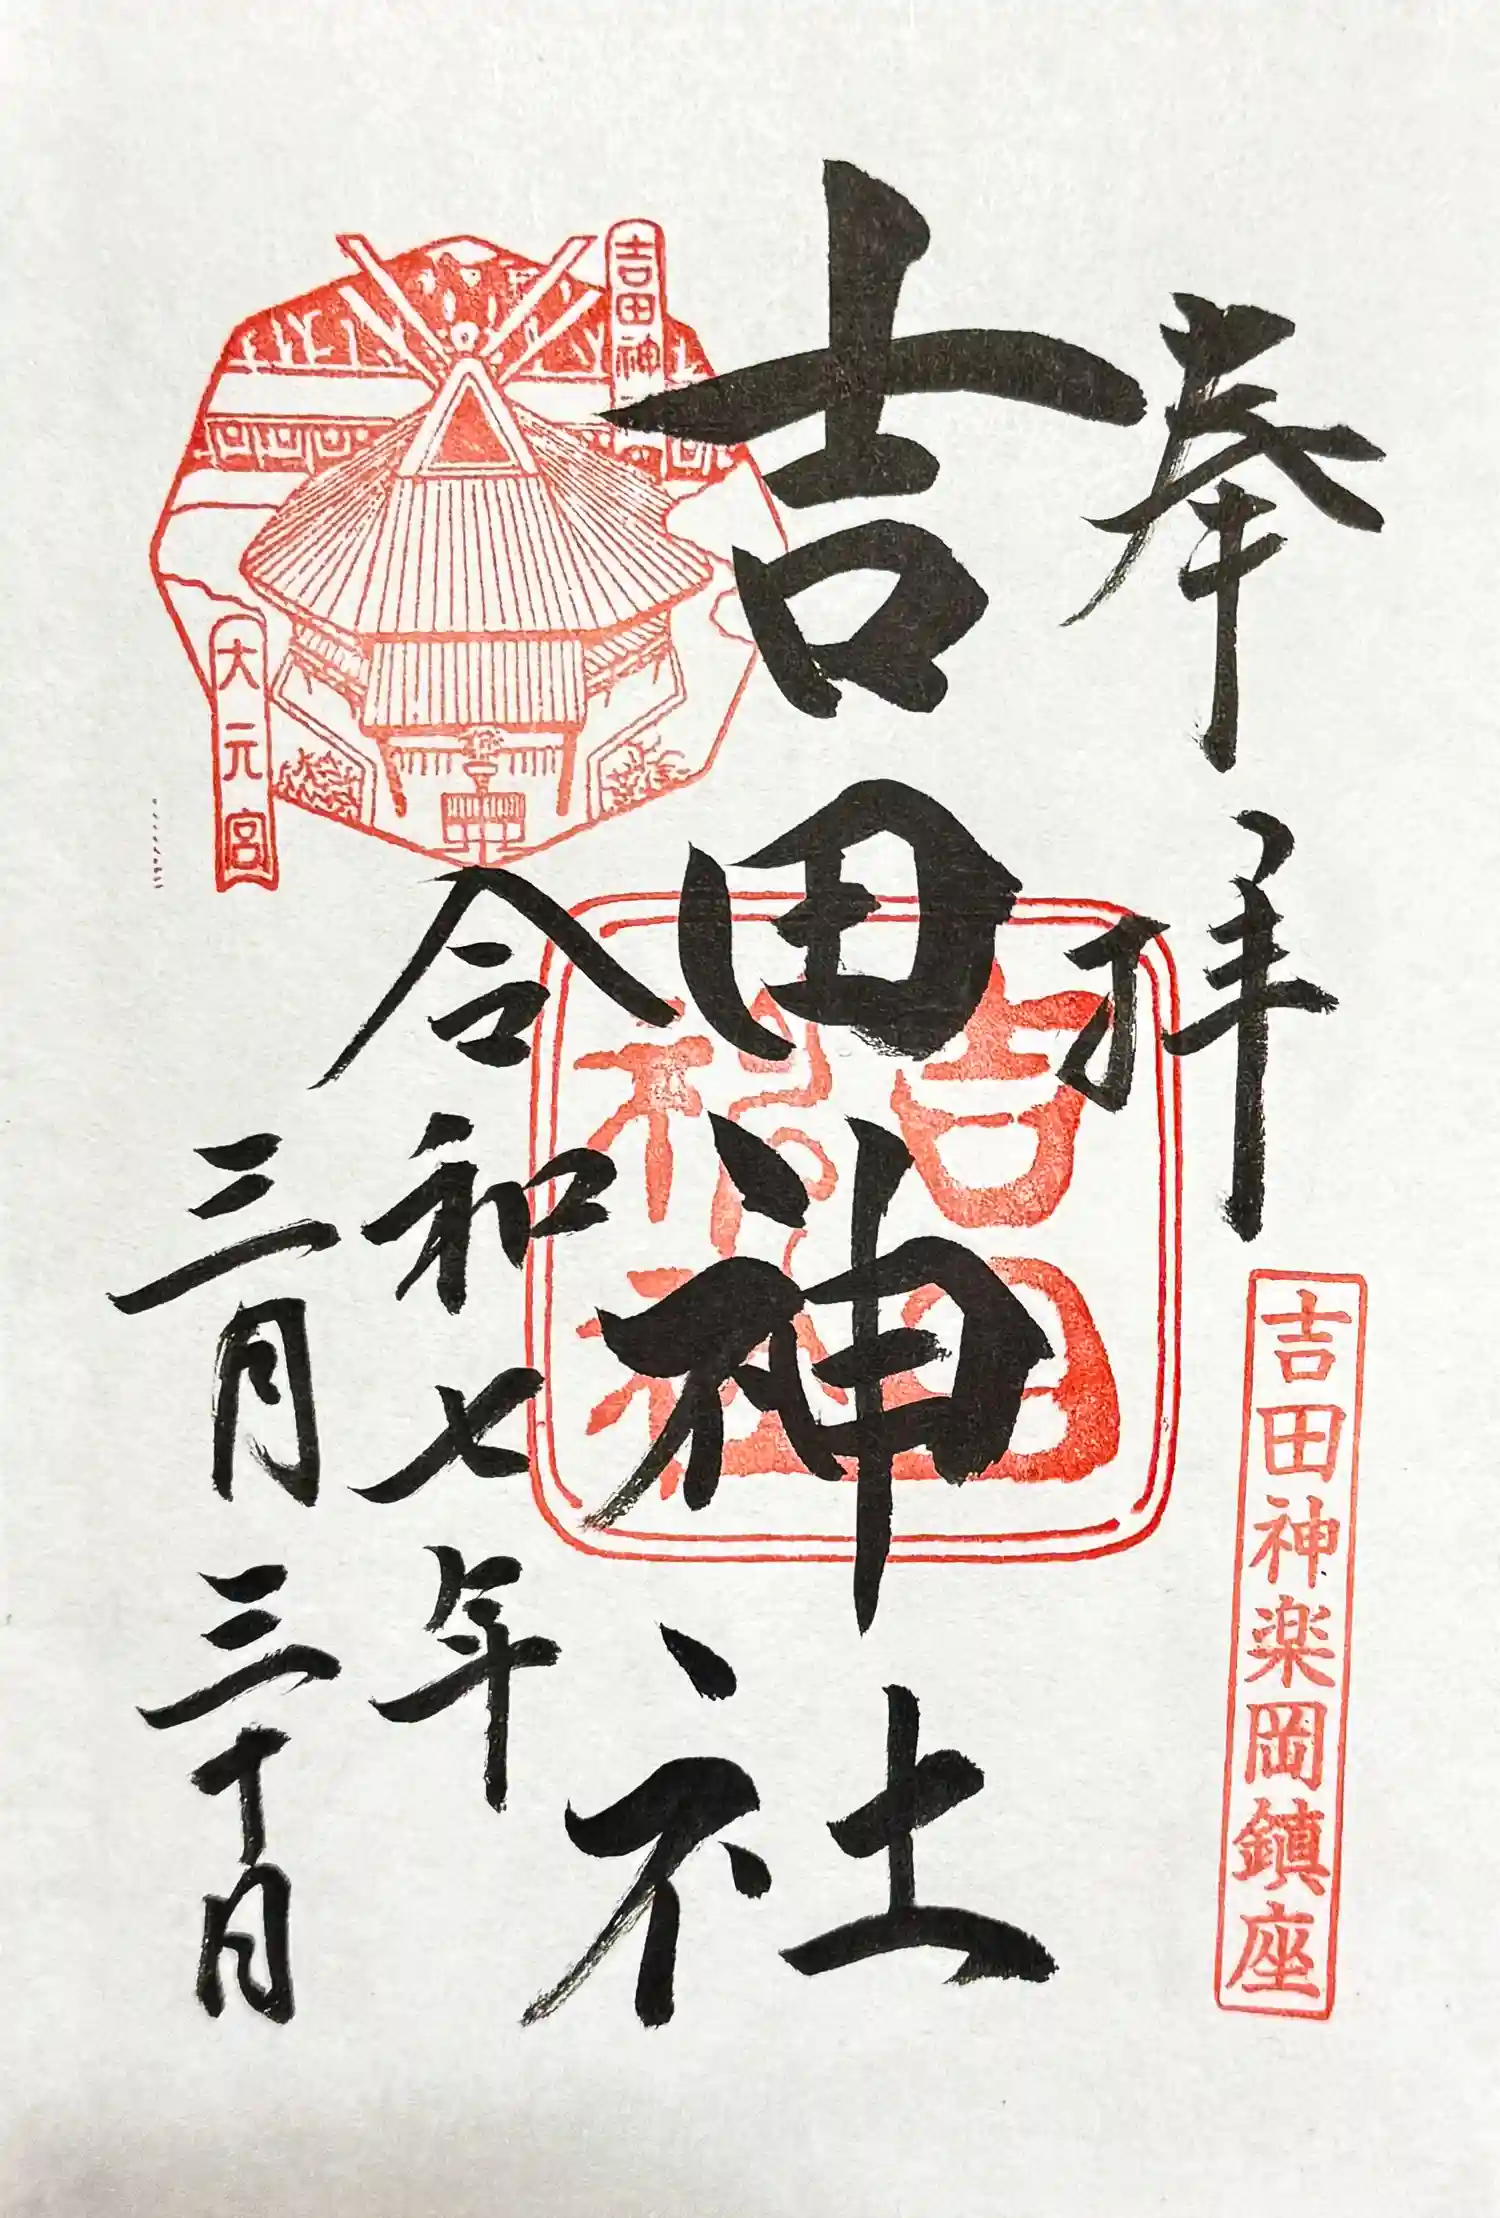 奉拝
吉田神楽岡鎮座
吉田神社
吉田神社
吉田神
令和七年
三月三十日
大元宮